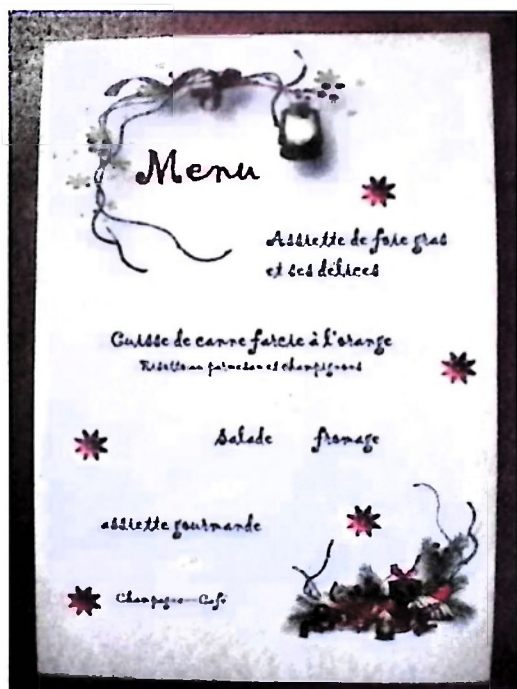 Menu
Assiette de foie gras
et ses délices
Cuisse de canne farcie à l'orange
Risotto au parmesan et champignons
Salade fromage
assiette gourmande
Champagne - Café